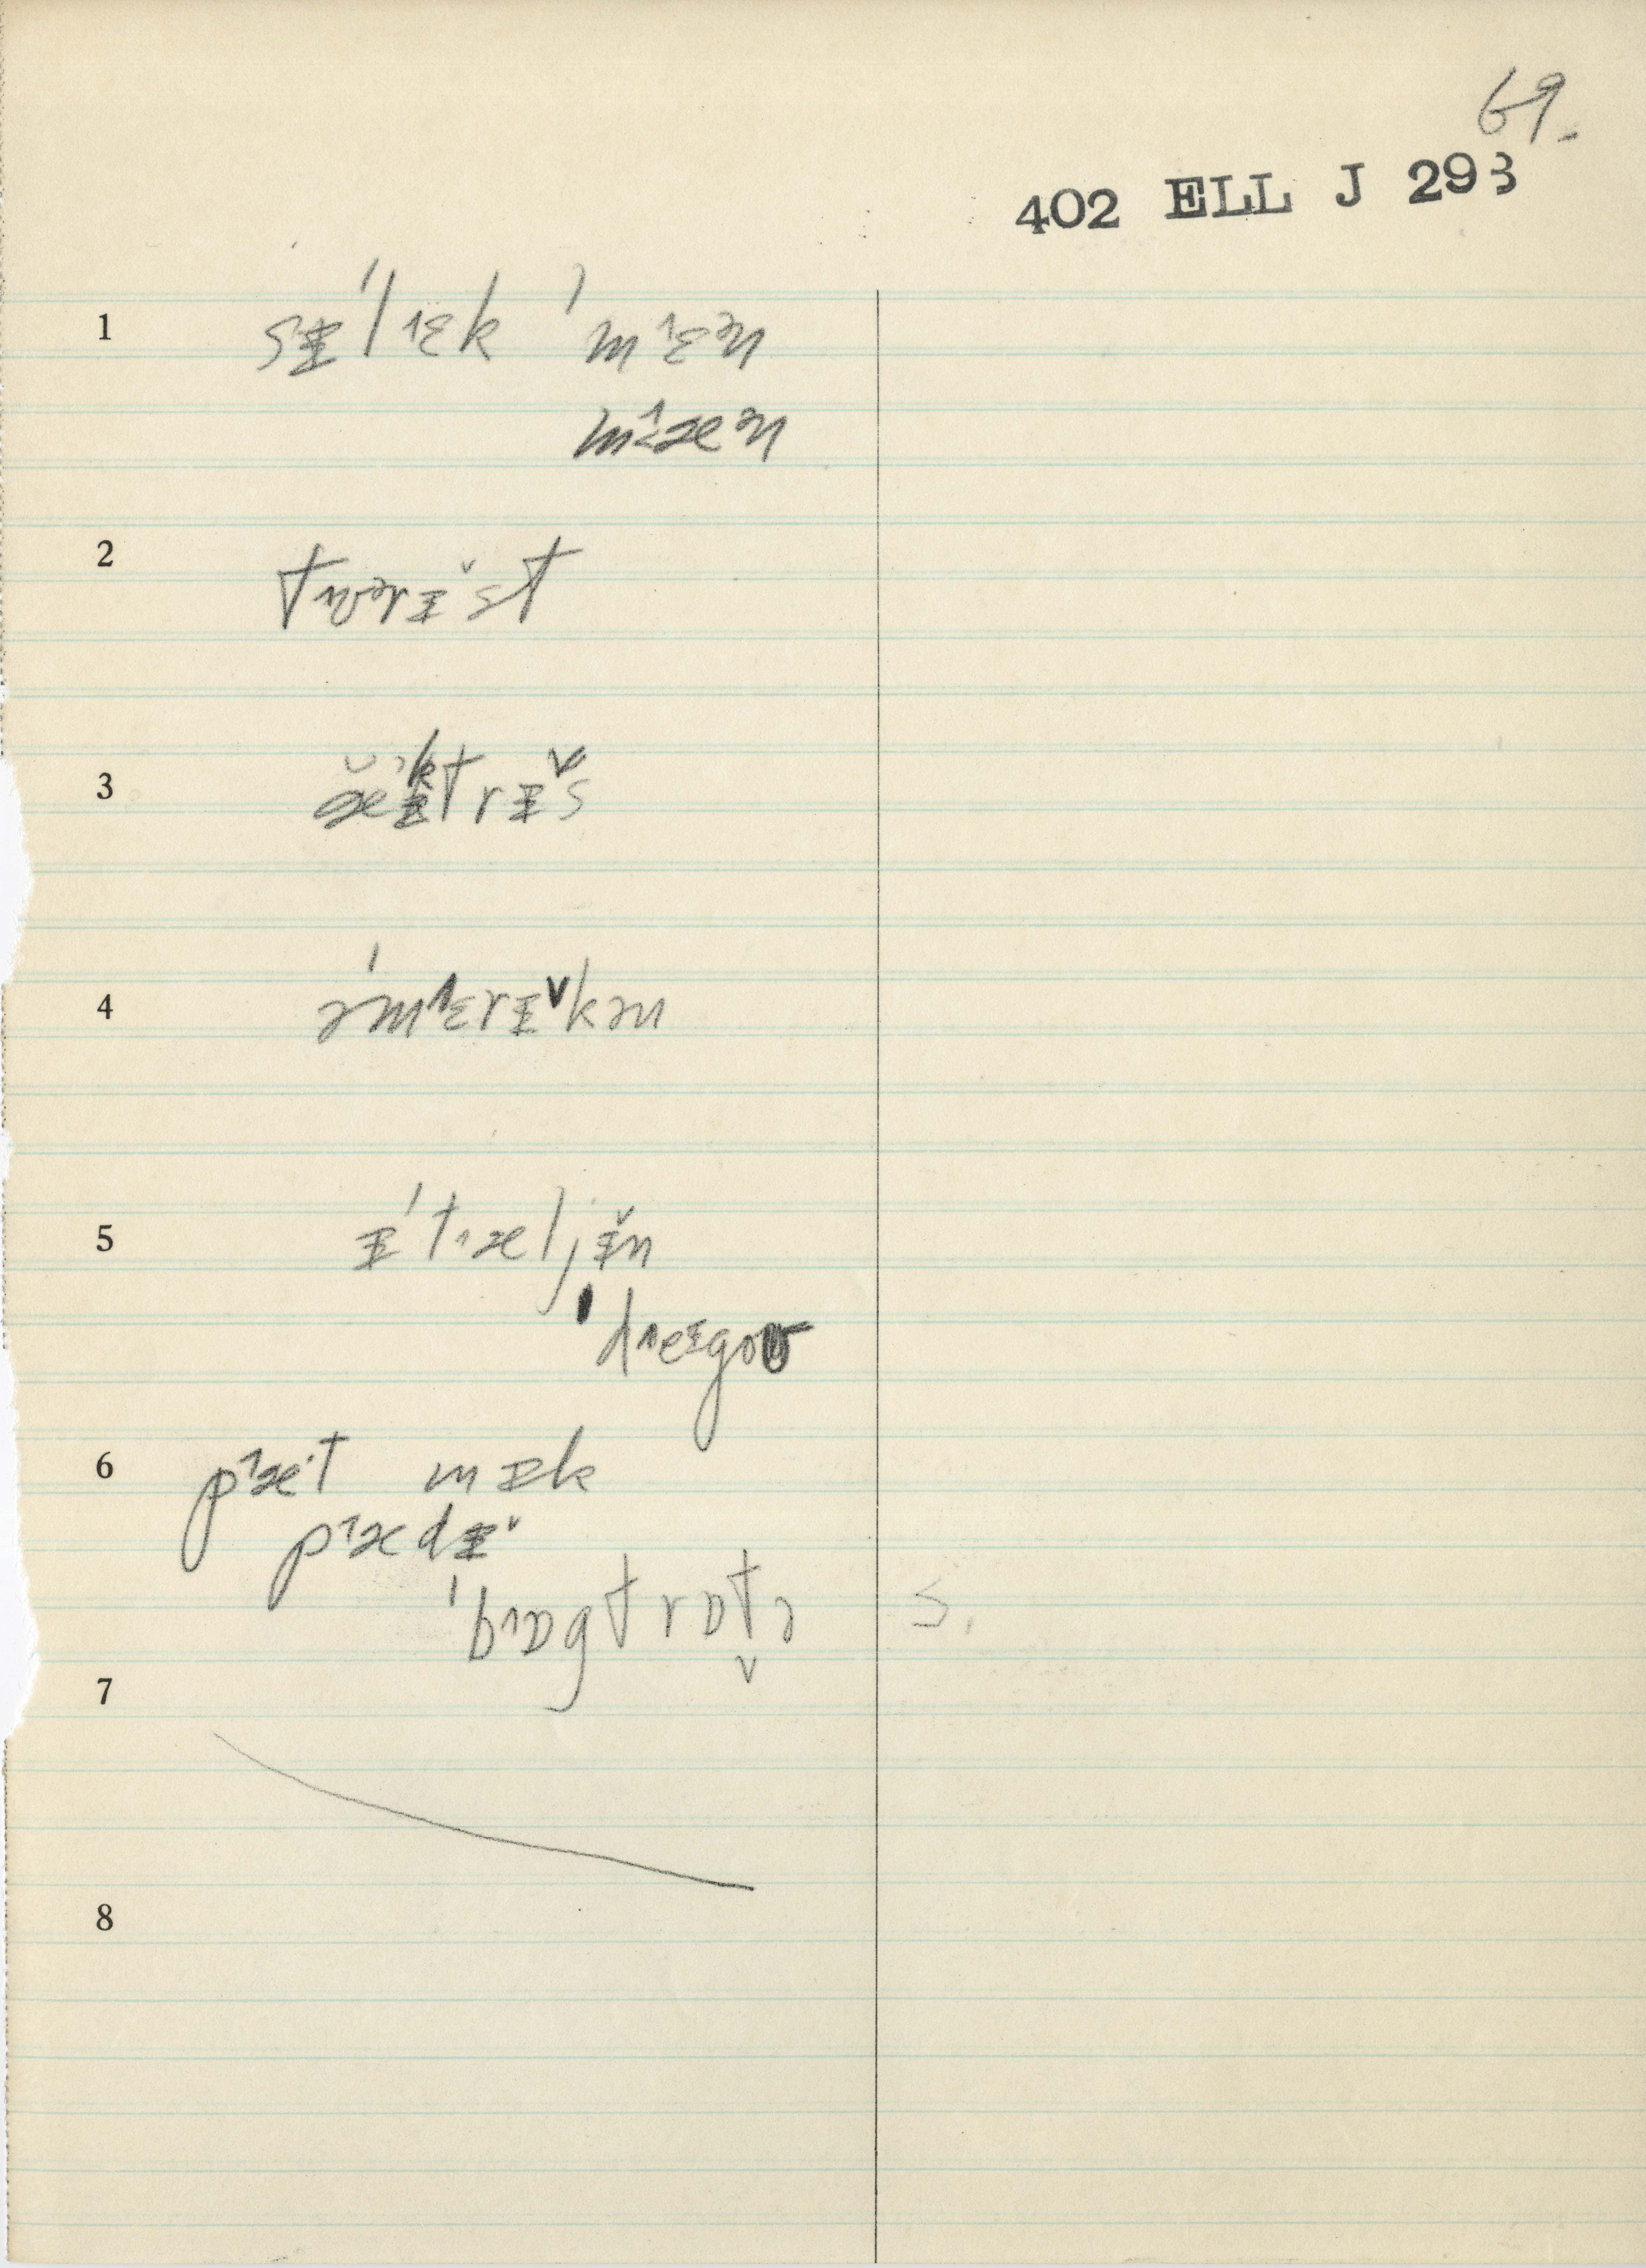 69.
402 ELL J 293
1 sɪˈl˄ɛk ˈm˄ɛən
m˄æən
2 tʊərɪ˅st
3 ˈæktrɪ˅s
4 əˈm˄ɛrɪ˅kən
5 ɪˈt˄æljɪ˅n
ˈd˄eɪgoʊ
6 p˄æ·t mɪk
p˄ædɪ˅
ˈb˄ɒgtrɒt˅ə s.
7
8